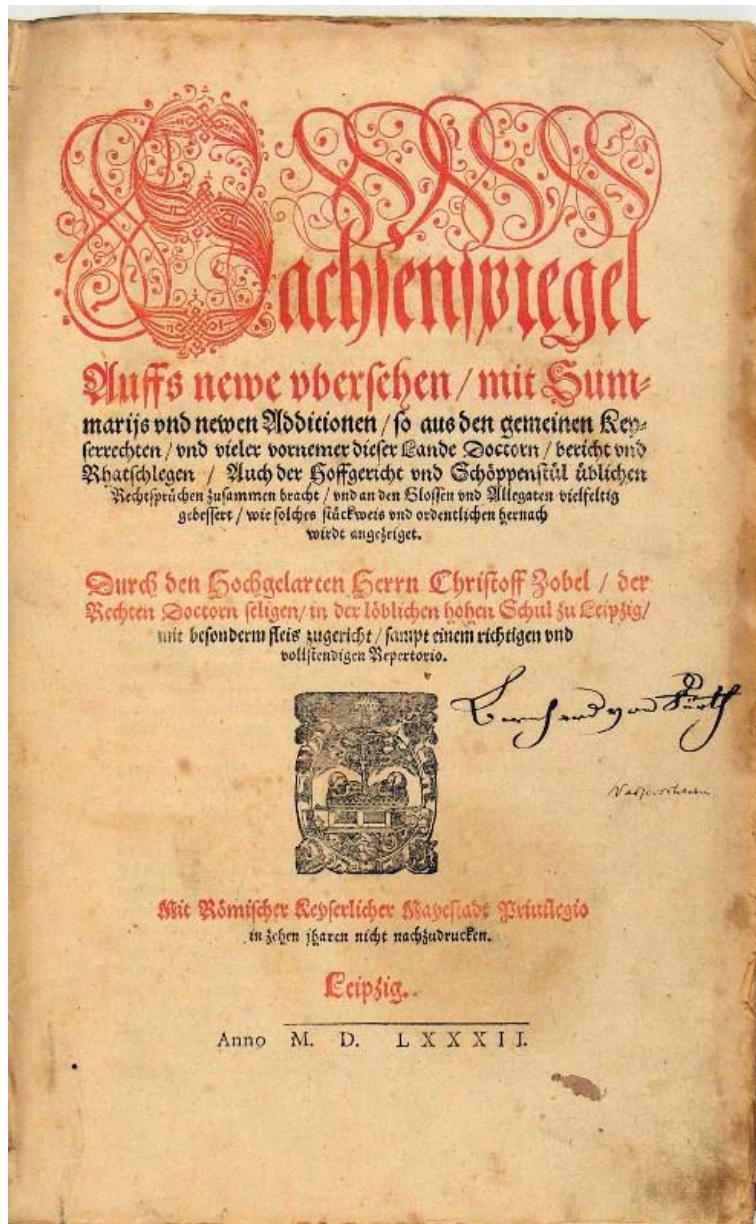 Sachsenspiegel
Auffs newe vbersehen / mit Sum-
marijs vnd newen Additionen / so aus den gemeinen Key-
serrechten / vnd vieler vornemer dieser Lande Doctorn / bericht vnd
Rhatschlegen / Auch der Hoffgericht vnd Schöppenstül üblichen
Rechtsprüchen zusammen bracht / vnd an den Glossen vnd Allegaten vielfeltig
gebessert / wie solches stückweis vnd ordentlichen hernach
wirdt angezeiget.
Durch den Hochgelarten Herrn Christoff Zobel / der
Rechten Doctorn seligen / in der löblichen hohen Schul zu Leipzig /
mit besonderm fleis zugericht / sampt einem richtigen vnd
vollstendigen Repertorio.
Bernhard von Fürth
Mit Römischer Keyserlicher Mayestadt Priuilegio
in zehen jharen nicht nachzudrucken.
Leipzig.
Anno M. D. LXXXII.